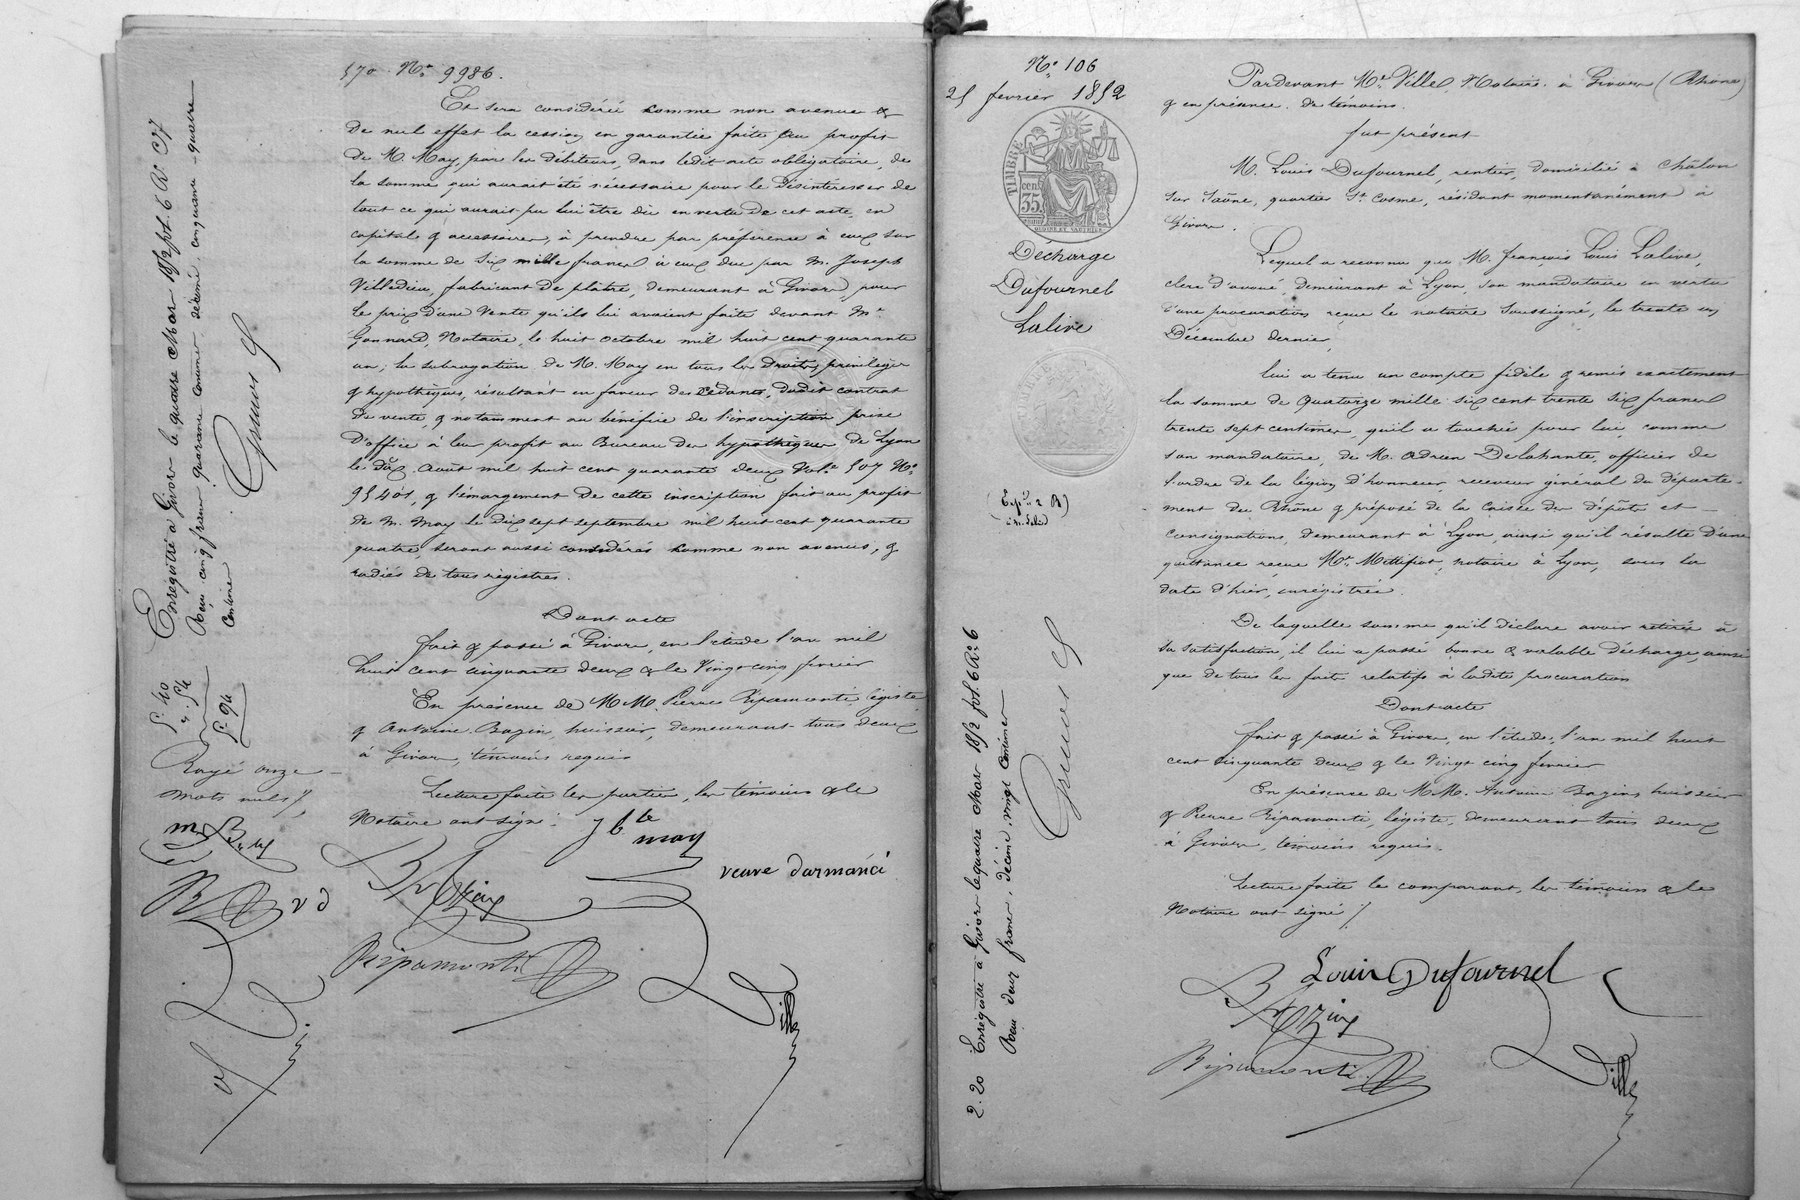 570. No. 9986.
Et sera considérée comme non avenue &
de nul effet la cession en garantie faite au profit
de M. May, par les débiteurs, dans ledit acte obligatoire, de
la somme qui aurait été nécessaire pour le désintéresser de
tout ce qui aurait pu lui être dû en vertu de cet acte en
capital & accessoires, à prendre par préférence à eux sur
la somme de six mille francs à eux due par M. Joseph
Villedieu, fabricant de plâtre, demeurant à Givors, pour
le prix d'une vente qu'ils lui avaient faite devant Me
Gonnard, Notaire, le huit octobre mil huit cent quarante
un; la subrogation de M. May en tous les droits, privilèges
& hypothèques, résultant en faveur des cédants, dudit contrat
de vente, & notamment au bénéfice de l'inscription prise
d'office à leur profit au Bureau des hypothèques de Lyon
le dix août mil huit cent quarante deux Vol. 507 No.
& l'émargement de cette inscription fait au profit
de M. May le dix sept septembre mil huit cent quarante
quatre, seront aussi considérés comme non avenus, &
radiés de tous registres.
Dont acte
fait & passé à Givors, en l'étude l'an mil
huit cent cinquante deux & le vingt cinq février
En présence de MM. Pierre Ripamonti, légiste,
& Antoine Bazin, huissier, demeurant tous deux
à Givors, témoins requis
Lecture faite les parties, les témoins & le
Notaire ont signé.
may
veuve darmanci
Bazin
Ripamonti
Ville
Enregistré à Givors le quatre Mars 1852 fol. 6 Ro C 7
Reçu cinq francs quarante centimes, décime, cinquante-quatre
centimes
5.40
.54
5.94
Rayé onze
mots nuls
vd
No. 106
25 février 1852
TIMBRE
35
Décharge
Dufournel
Lalive
Enregistré à Givors le quatre Mars 1852 fol. 6 Ro. 6
Reçu deux francs, décime, vingt centimes
2.20
Pardevant Me. Ville, Notaire à Givors (Rhône)
& en présence de témoins.
fut présent
M. Louis Dufournel, rentier, domicilié à Châlon
sur Saône, quartier St. Cosme, résidant momentanément à
Givors.
Lequel a reconnu que M. François Louis Lalive,
clerc d'avoué, demeurant à Lyon, son mandataire en vertu
d'une procuration reçue le notaire soussigné, le trente un
Décembre dernier,
lui a tenu un compte fidèle & remis exactement
la somme de quatorze mille six cent trente six francs
trente sept centimes, qu'il a touchée pour lui, comme
son mandataire, de M. Adrien Delahante, officier de
l'ordre de la légion d'honneur receveur général du départe-
ment du Rhône & préposé de la caisse des dépôts et
consignations, demeurant à Lyon, ainsi qu'il résulte d'une
quittance reçue Me. Mittifiot, notaire à Lyon, sous la
date d'hier, enrégistrée.
De laquelle somme qu'il déclare avoir retirée à
sa satisfaction, il lui a passé bonne & valable décharge, ainsi
que de tous les faits relatifs à ladite procuration
Dont acte
fait & passé à Givors, en l'étude, l'an mil huit
cent cinquante deux & le vingt cinq février
En présence de MM. Antoine Bazin, huissier
& Pierre Ripamonti, légiste, demeurant tous deux
à Givors, témoins requis.
Lecture faite le comparant, les témoins & le
Notaire ont signé
Louis Dufournel
Bazin
Ripamonti
Ville